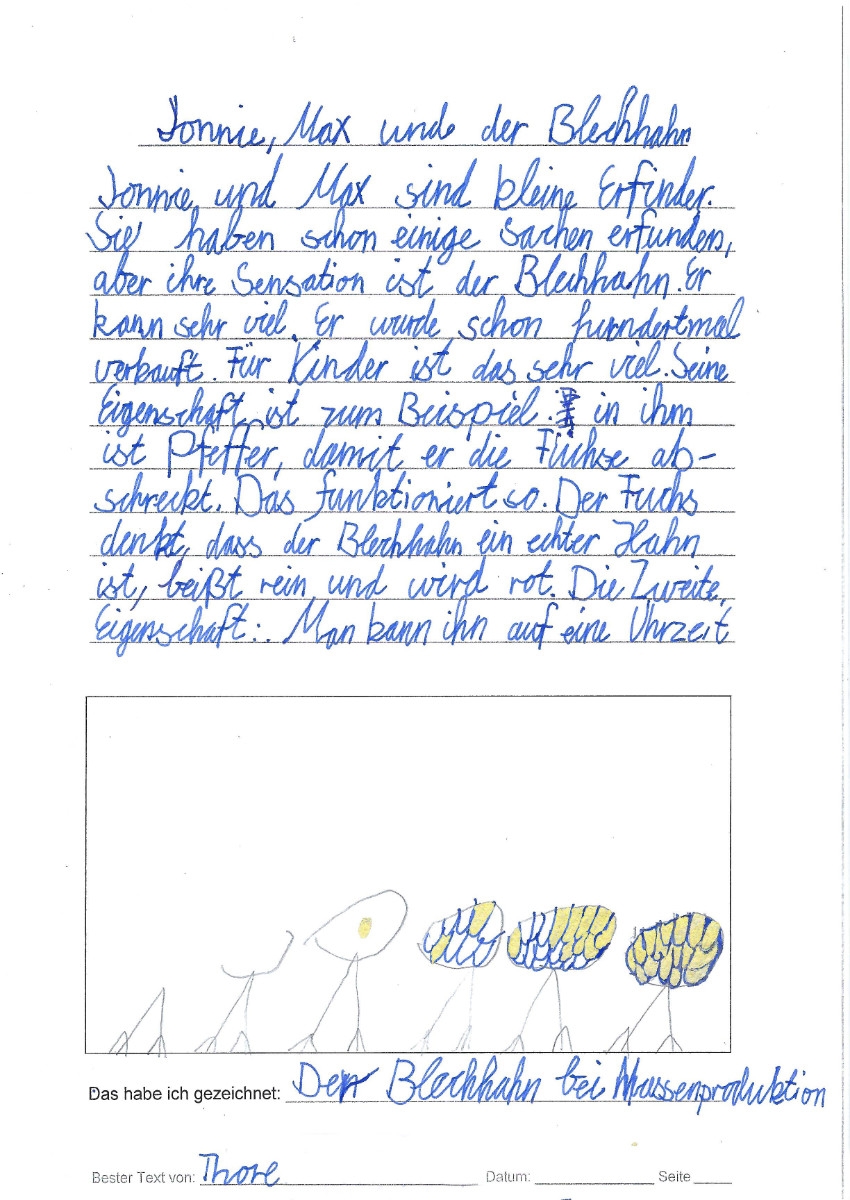 Jonnie, Max und der Blechhahn
Jonnie und Max sind kleine Erfinder.
Sie haben schon einige Sachen erfunden,
aber ihre Sensation ist der Blechhahn. Er
kann sehr viel. Er wurde schon hundertmal
verkauft. Für Kinder ist das sehr viel. Seine
Eigenschaft ist zum Beispiel: in ihm
ist Pfeffer, damit er die Füchse ab-
schreckt. Das funktioniert so. Der Fuchs
denkt, dass der Blechhahn ein echter Hahn
ist, beißt rein und wird rot. Die Zweite
Eigenschaft: Man kann ihn auf eine Uhrzeit
Das habe ich gezeichnet: Der Blechhahn bei Massenproduktion
Bester Text von: Thore Datum: Seite